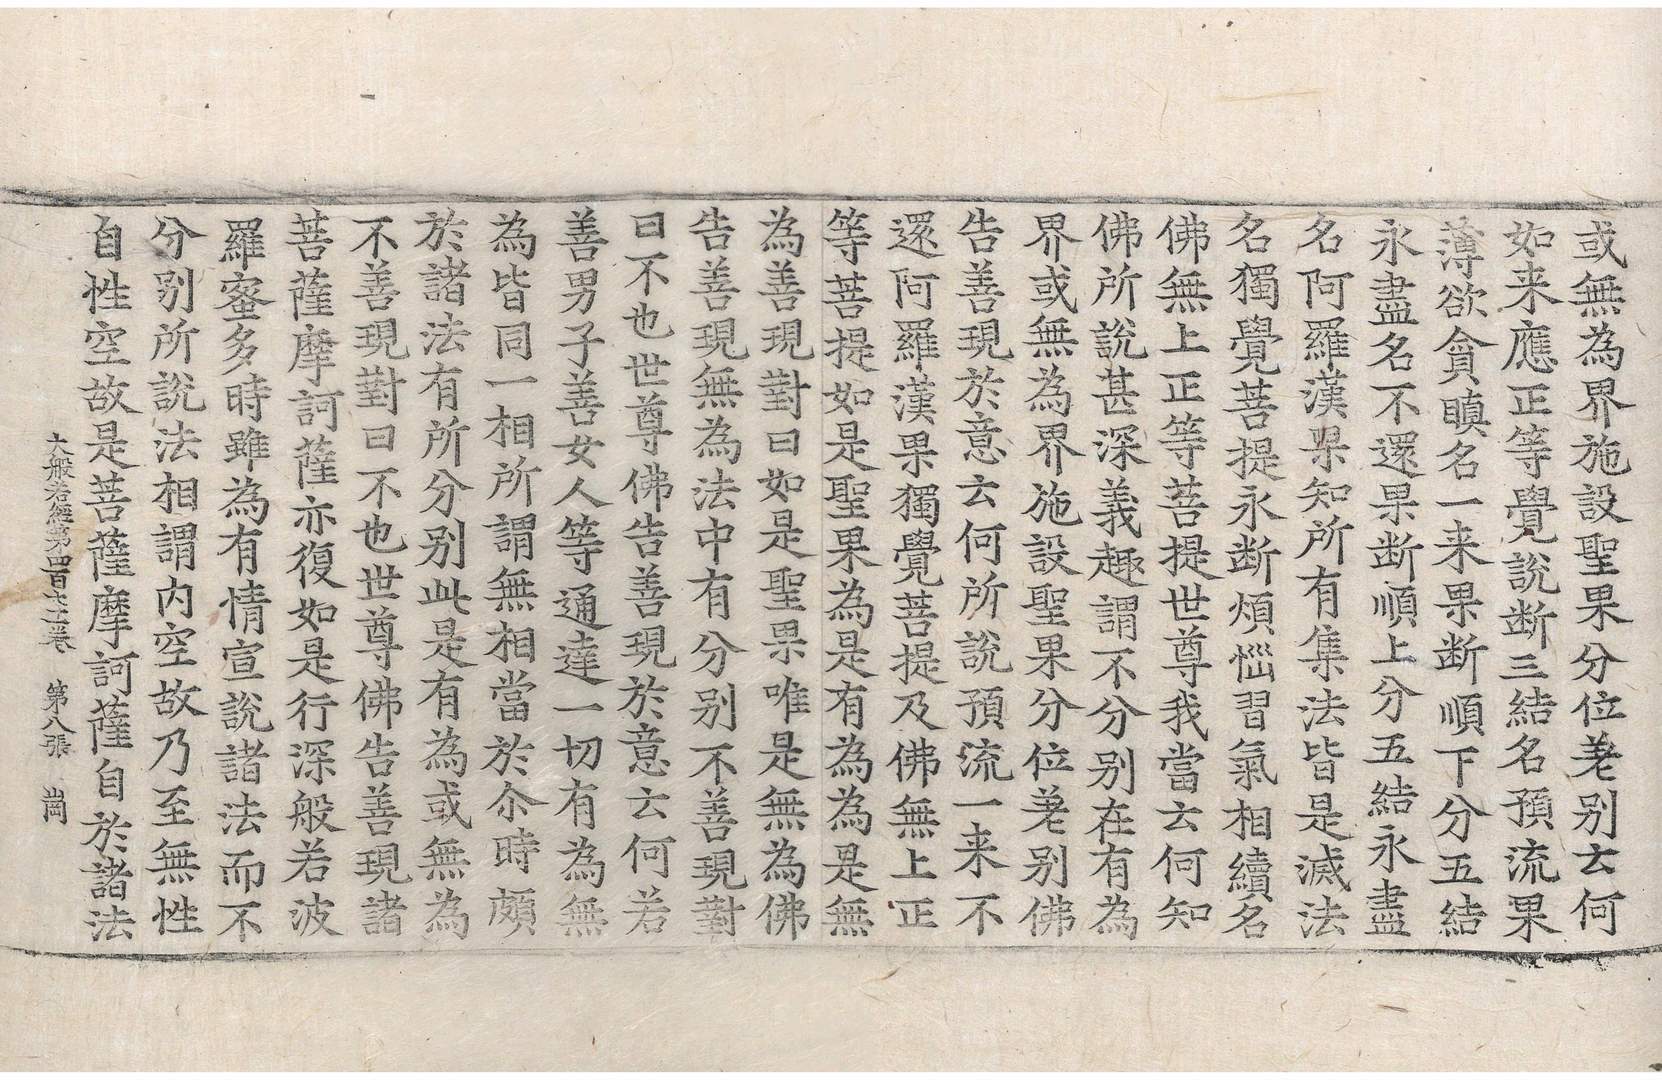 或無為界施設聖果分位差别云何
如来應正等覺說断三結名預流果
薄欲貪瞋名一来果断順下分五結
永盡名不還果断順上分五結永盡
名阿羅漢果知所有集法皆是滅法
名獨覺菩提永断煩惱習氣相續名
佛無上正等菩提世尊我當云何知
佛所說甚深義趣謂不分别在有為
界或無為界施設聖果分位差别佛
告善現於意云何所說預流一来不
還阿羅漢果獨覺菩提及佛無上正
等菩提如是聖果為是有為為是無
為善現對曰如是聖果唯是無為佛
告善現無為法中有分别不善現對
曰不也世尊佛告善現於意云何若
善男子善女人等通達一切有為無
為皆同一相所謂無相當於尒時頗
於諸法有所分别此是有為或無為
不善現對曰不也世尊佛告善現諸
菩薩摩訶薩亦復如是行深般若波
羅蜜多時雖為有情宣說諸法而不
分别所說法相謂内空故乃至無性
自性空故是菩薩摩訶薩自於諸法
大般若經第四百六十二卷　第八張　崗